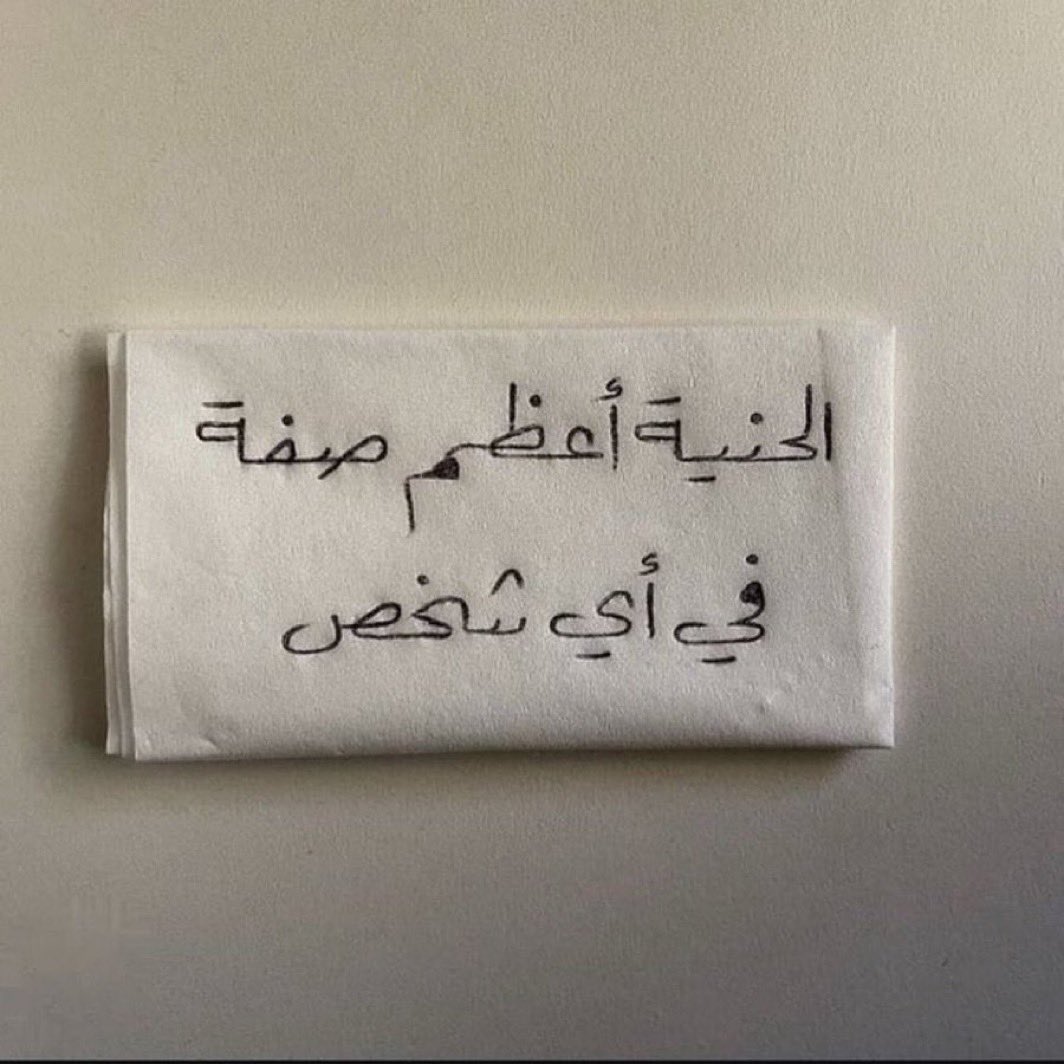 الحنية أعظم صفة
في أي شخص